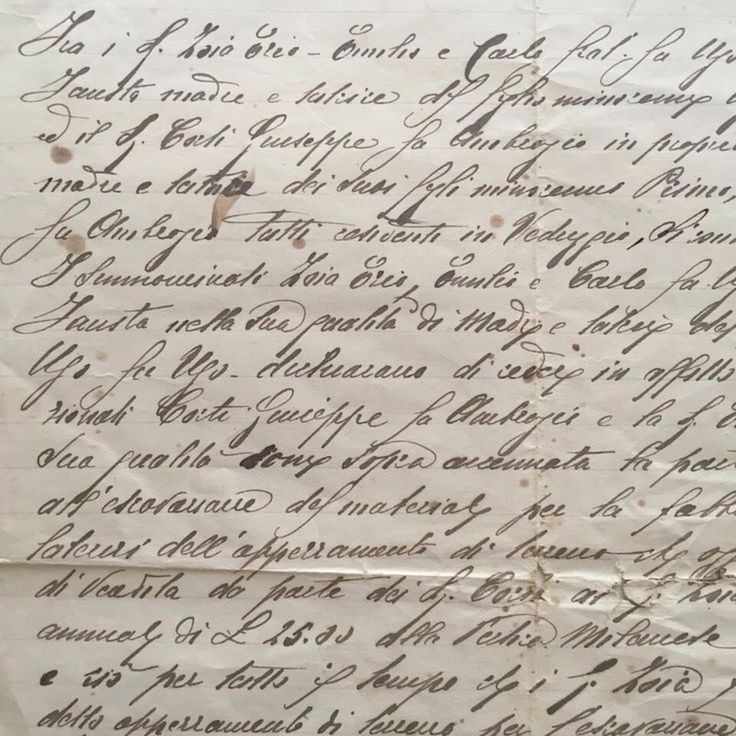 Fra i S. Zoia Ezio - Emilio e Carlo frat. fu Ugo
Fausta madre e tutrice del figlio minorenne
ed il S. Corti Giuseppe fu Ambrogio in proprio
madre e tutrice dei suoi figli minorenni Primo,
fu Ambrogio tutti residenti in Veduggio, si con
I summominati Zoia Ezio, Emilio e Carlo fu Ug
Fausta nella sua qualità di Madre e tutrice del
Ugo fu Ugo - dichiarano di cedere in affitto
zionati Corti Giuseppe fu Ambrogio e la S.
sua qualità come sopra accennata la parte
all'escavazione del materiale per la fabb
laterizi dell'apperzamento di terreno che
di vendita da parte dei S. Corti ai S. Zoia
annuale di £ 25.00 alla Pertica Milanese
e ciò per tutto il tempo che i S. Zoia
dello apperzamento di terreno per l'escavazione